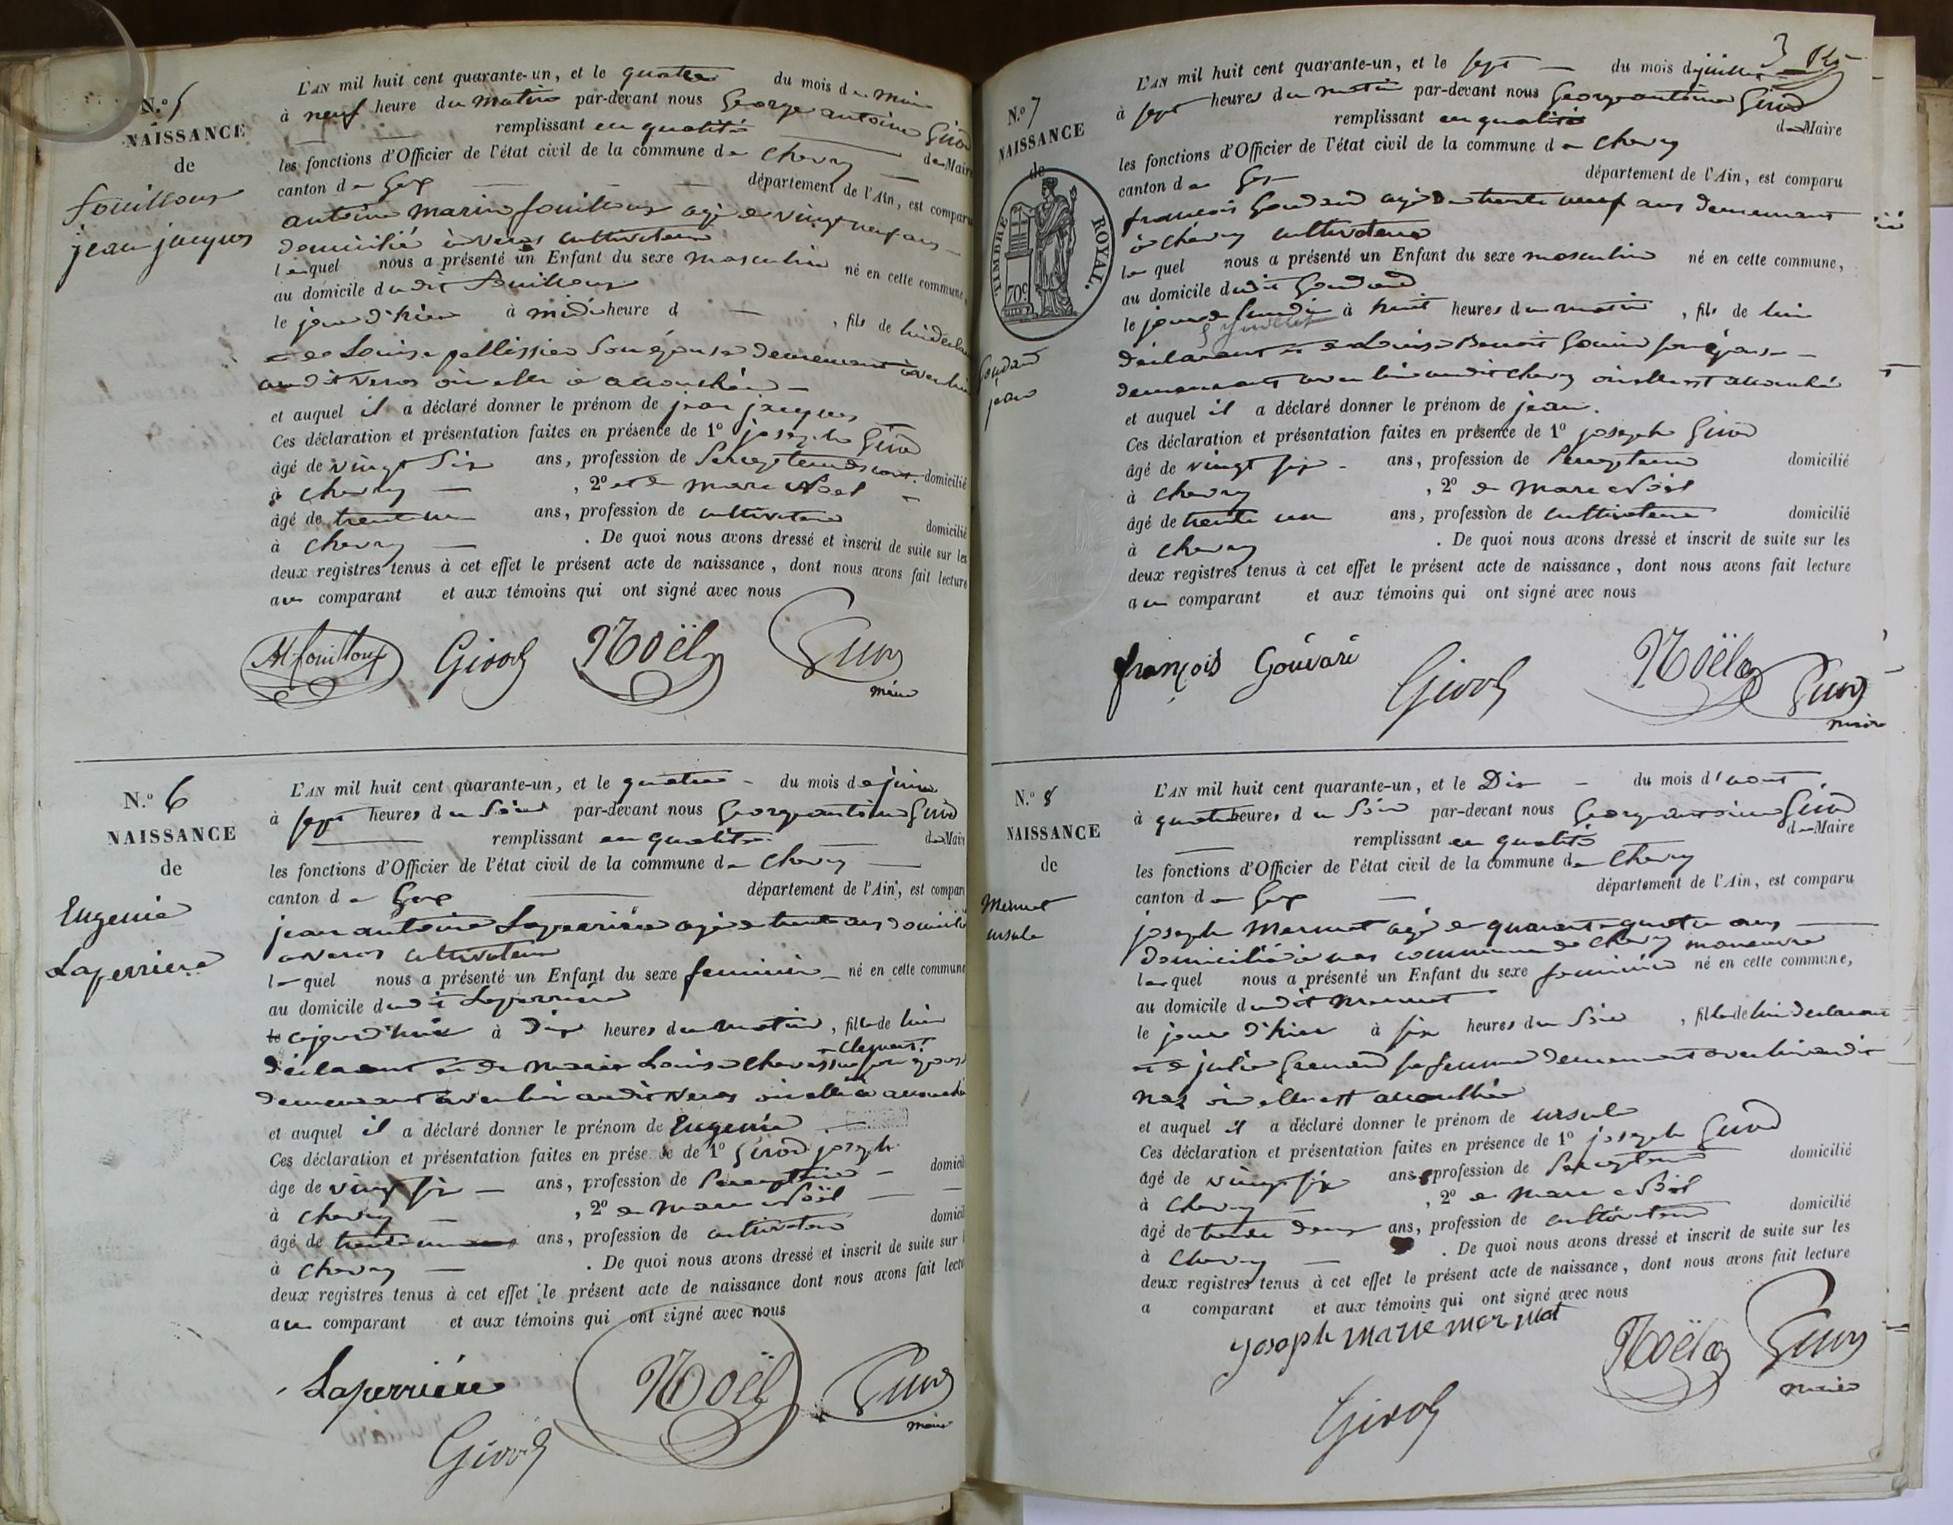 N.º 5
NAISSANCE
de
fouilloux
jean jacques
L'AN mil huit cent quarante-un, et le quatre du mois de mai
à neuf heure du matin par-devant nous George antoine Girod
remplissant en qualité de Maire
les fonctions d'Officier de l'état civil de la commune de Chevry
canton de Gex département de l'Ain, est comparu
antoine Marie fouilloux agé de vingt neuf ans
domicilié à veras cultivateur
lequel nous a présenté un Enfant du sexe masculin né en cette commune,
au domicile dudit fouilloux
le jour d'hier à midi heure d , fils de lui déclarant
et de Louise pellissier son épouse demeurant avec lui
audit veras où elle a accouchée
et auquel il a déclaré donner le prénom de jean jacques
Ces déclaration et présentation faites en présence de 1º joseph Girod
âgé de vingt six ans, profession de Percepteur domicilié
à Chevry , 2º et de marc Noël
âgé de trente un ans, profession de cultivateur domicilié
à Chevry . De quoi nous avons dressé et inscrit de suite sur les
deux registres tenus à cet effet le présent acte de naissance, dont nous avons fait lecture
au comparant et aux témoins qui ont signé avec nous
AM fouilloux Girod Noël Girod
maire
N.º 6
NAISSANCE
de
Eugenie
Laperriere
L'AN mil huit cent quarante-un, et le quatre du mois de juin
à sept heures du Soir par-devant nous George antoine Girod
remplissant en qualité de Maire
les fonctions d'Officier de l'état civil de la commune de Chevry
canton de Gex département de l'Ain, est comparu
jean antoine Laperrière agé de trente ans domicilié
a veras cultivateur
lequel nous a présenté un Enfant du sexe feminin né en cette commune
au domicile dudit Laperrière
le aujourd'hui à dix heures du matin, fille de lui
Clement
déclarant et de marie Louise son épouse
demeurant avec lui audit veras où elle a accouchée
et auquel il a déclaré donner le prénom de Eugenie
Ces déclaration et présentation faites en présence de 1º Girod joseph
âgé de vingt six ans, profession de Percepteur domicilié
à Chevry , 2º de marc Noël
âgé de trente un ans, profession de cultivateur domicilié
à Chevry . De quoi nous avons dressé et inscrit de suite sur
deux registres tenus à cet effet le présent acte de naissance dont nous avons fait lecture
au comparant et aux témoins qui ont signé avec nous
Laperrière Noël Girod
maire
Girod
3
N.º 7
NAISSANCE
de
TIMBRE ROYAL.
70 c
Goudard
jean
L'AN mil huit cent quarante-un, et le sept du mois de juillet
à sept heures du matin par-devant nous George antoine Girod
remplissant en qualité de Maire
les fonctions d'Officier de l'état civil de la commune de Chevry
canton de Gex département de l'Ain, est comparu
francois Goudard agé de trente neuf ans demeurant
à chevry cultivateur
lequel nous a présenté un Enfant du sexe masculin né en cette commune,
au domicile dudit Goudard
le jour de lundi à huit heures du matin , fils de lui
5 juillet
déclarant et de Louise Benoit Gouin son épouse
demeurant avec lui audit chevry où elle est accouchée
et auquel il a déclaré donner le prénom de jean.
Ces déclaration et présentation faites en présence de 1º joseph Girod
âgé de vingt six ans, profession de Percepteur domicilié
à Chevry , 2º de marc Noël
âgé de trente un ans, profession de cultivateur domicilié
à Chevry . De quoi nous avons dressé et inscrit de suite sur les
deux registres tenus à cet effet le présent acte de naissance, dont nous avons fait lecture
au comparant et aux témoins qui ont signé avec nous
françois Goúvard Girod Noël Girod
maire
N.º 8
NAISSANCE
de
Mermet
ursule
L'AN mil huit cent quarante-un, et le Dix du mois d'aout
à quatre heures du Soir par-devant nous George antoine Girod
remplissant en qualité de Maire
les fonctions d'Officier de l'état civil de la commune de Chevry
canton de Gex département de l'Ain, est comparu
joseph Mermet agé de quarante quatre ans
domicilié à naz commune de Chevry manoeuvre
lequel nous a présenté un Enfant du sexe feminin né en cette commune,
au domicile dudit Mermet
le jour d'hier à six heures du Soir , fille de lui declarant
et de julie sa femme demeurant avec lui audit
naz où elle est accouchée
et auquel il a déclaré donner le prénom de ursule
Ces déclaration et présentation faites en présence de 1º joseph Girod
âgé de vingt six ans, profession de Percepteur domicilié
à Chevry , 2º de marc Noël
âgé de trente deux ans, profession de cultivateur domicilié
à Chevry . De quoi nous avons dressé et inscrit de suite sur les
deux registres tenus à cet effet le présent acte de naissance, dont nous avons fait lecture
a comparant et aux témoins qui ont signé avec nous
joseph marie mermet Noël Girod
maire
Girod